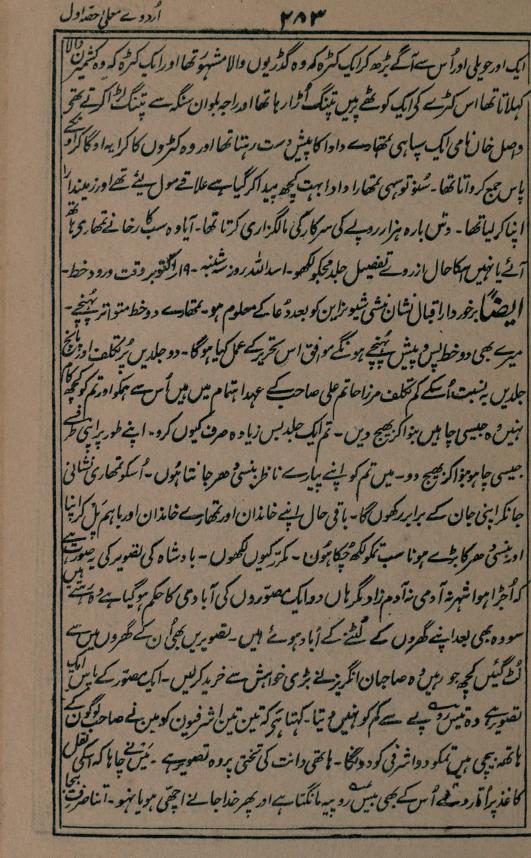 اُردوے معلّٰی حصّہ اول
۲۸۳
ایک اور حویلی اور اُس سے آگے بڑھ کر ایک کٹرہ کہ وہ گڈریوں والا مشہور تھا اور ایک کٹرہ کہ وہ کشمیرن والا
کہلاتا تھا اس کٹرے کی ایک کوٹھے پر میں پتنگ اُڑا رہا تھا اور راجہ بلوان سنگہ سے پتنگ لڑا کرتے تھی
واصل خان نامی ایک سپاہی تمھارے دادا کا پیش دست رہتا تھا اور وہ کٹروں کا کرایہ اوگا کر اونکے
پاس جمع کرواتا تھا۔ سُنو تو سہی تمھارا دادا بہت کچھ پیدا کر گیا ہے علاقے مول لیئے تھے اور زمیندارا
اپنا کر لیا تھا۔ دس بارہ ہزار روپے کی سرکار کی مالگزاری کرتا تھا۔ آیا وہ سب کارخانے تمھاری ہاتھ
آئے یا نہیں اسکا حال از روے تفصیل جلد مجکو لکھو۔ اسد اللہ روز سہ شنبہ۔ ۱۹ اکتوبر وقت ورود خط۔
ایضاً برخوردار اقبال نشان منشی شیو نراین کو بعد دُعا کے معلوم ہو۔ تمھارے دو خط متواتر پُہنچے۔
میرے بھی دو خط پس و پیش پہنچے ہونگے موافق اس تحریر کے عمل کیا ہوگا۔ دو جلدیں پُر تکلف اور پانچ
جلدیں بہ نسبت اُسکے کم تکلف مرزا حاتم علی صاحب کے عہد اہتمام میں ہیں اُس سے ہمکو اور تم کو کچھ کام
نہیں وہ جیسی چاہیں بنوا کر بھیج دیں۔ تم ایک جلد بس زیادہ صرف کیوں کرو۔ اپنے طور پر اپنی طرف سے
جیسی چاہو بنوا کر بھیج دو۔ میں تم کو اپنے پیارے ناظر بنسی دھر جانتا ہوں۔ اُسکو تمھاری نشانی
جانکر اپنی جان کے برابر رکھوں گا۔ باقی حال اپنے خاندان اور تمھارے خاندان اور باہم پل کر اپنا
اور بنسی دھر کا بڑے ہونا سب تمکو لکھ چُکا ہوں۔ مکرر کیوں لکھوں۔ بادشاہ کی تصویر کی یہ صورت ہے
کہ اُجڑا ہوا شہر نہ آدمی نہ آدم زاد مگر ہاں دو ایک مصوّروں کی آبادی کا حکم ہوگیا ہے وہ رہتے ہیں
سو وہ بھی بعد اپنے گھروں کے لُٹنے کے آباد ہوئے ہیں۔ تصویریں بھی اُن کے گھروں میں سے
لُٹ گئیں کچھ جو رہیں وہ صاحبان انگریز نے بڑی خواہش سے خرید کر لیں۔ ایک مصوّر کے پاس ایک
تصویر ہے وہ تیس روپے سے کم کو نہیں دیتا۔ کہتا ہے کہ تین تین اشرفیوں کو مین نے صاحب لوگوں کے
ہاتھ بیچی ہیں تمکو دو اشرفی کو دونگا۔ ہاتھی دانت کی تختی پر وہ تصویر ہے۔ میں نے چاہا کہ اسکی نقل
کاغذ پر اُتار دے اُس کے بھی بیس روپیہ مانگتا ہے اور پھر خدا جانے اچھی ہو یا نہو۔ اتنا صرف بیجا